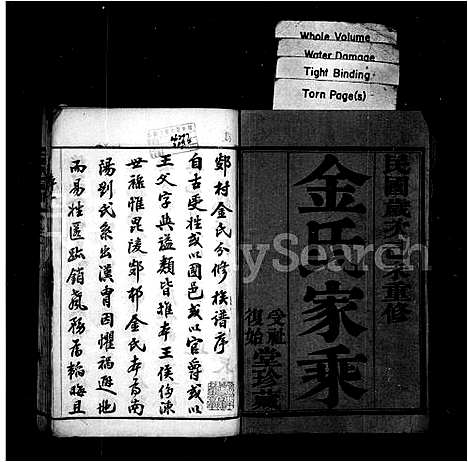 Whole Volume
Water Damage
Tight Binding
Torn Page(s)
民國歲次
重修
金氏家乘
受祉
復始
堂珍藏
鄴村金氏分修族譜序
自古受姓或以國邑或以官爵或以
王父字與謚類皆推本王侯傳
世祿惟毘陵鄴村金氏本南
陽劉氏系出漢胄因懼禍避地
而易姓匿跡銷聲務為韜晦且